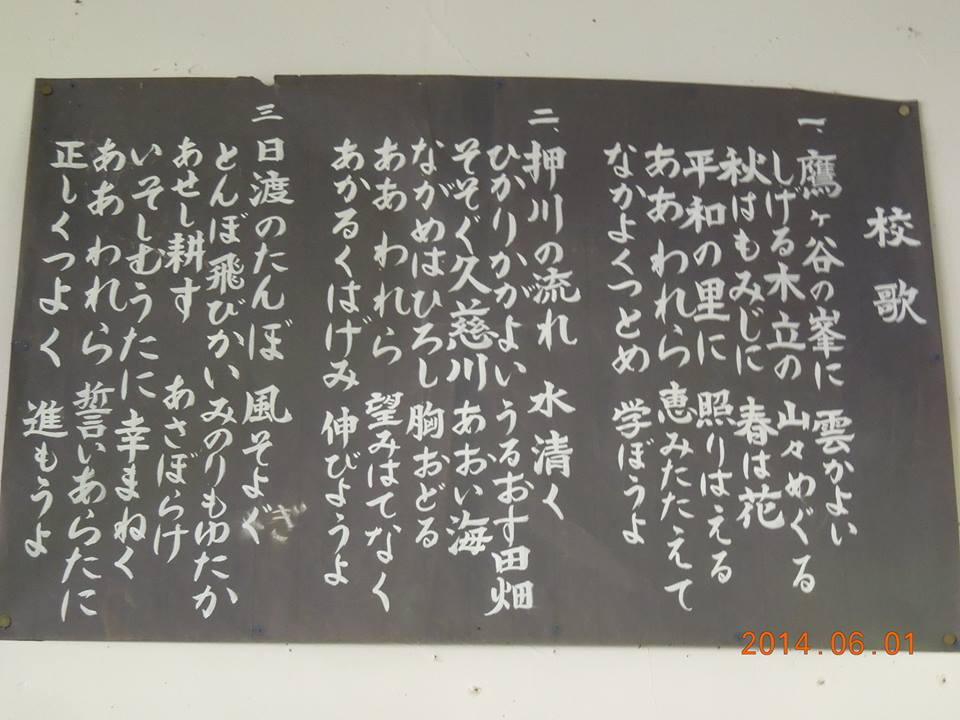 校歌
一、鷹ヶ谷の峯に 雲かよい
しげる木立の 山々めぐる
秋はもみじに 春は花
平和の里に 照りはえる
ああ われら 恵みたたえて
なかよくつとめ 学ぼうよ
二、押川の流れ 水清く
ひかりかがよい うるおす田畑
そそぐ久慈川 あおい海
ながめはひろし 胸おどる
ああ われら 望みはてなく
あかるくはげみ 伸びようよ
三 日渡のたんぼ 風そよぐ
とんぼ飛びかい みのりもゆたか
あせし耕す あさぼらけ
いそしむうたに 幸まねく
ああ われら 誓いあらたに
正しくつよく 進もうよ
2014.06.01